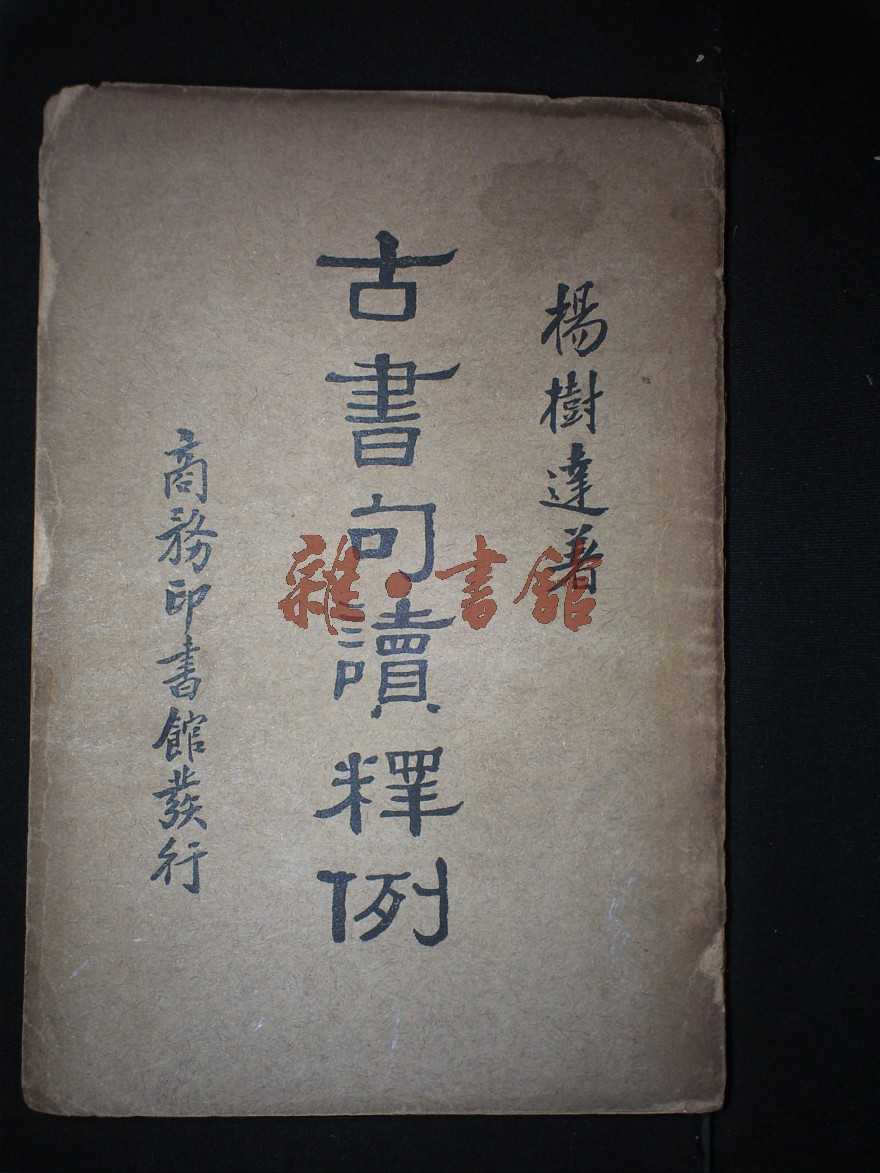 楊樹達著
古書句讀釋例
商務印書館發行
雜·書館